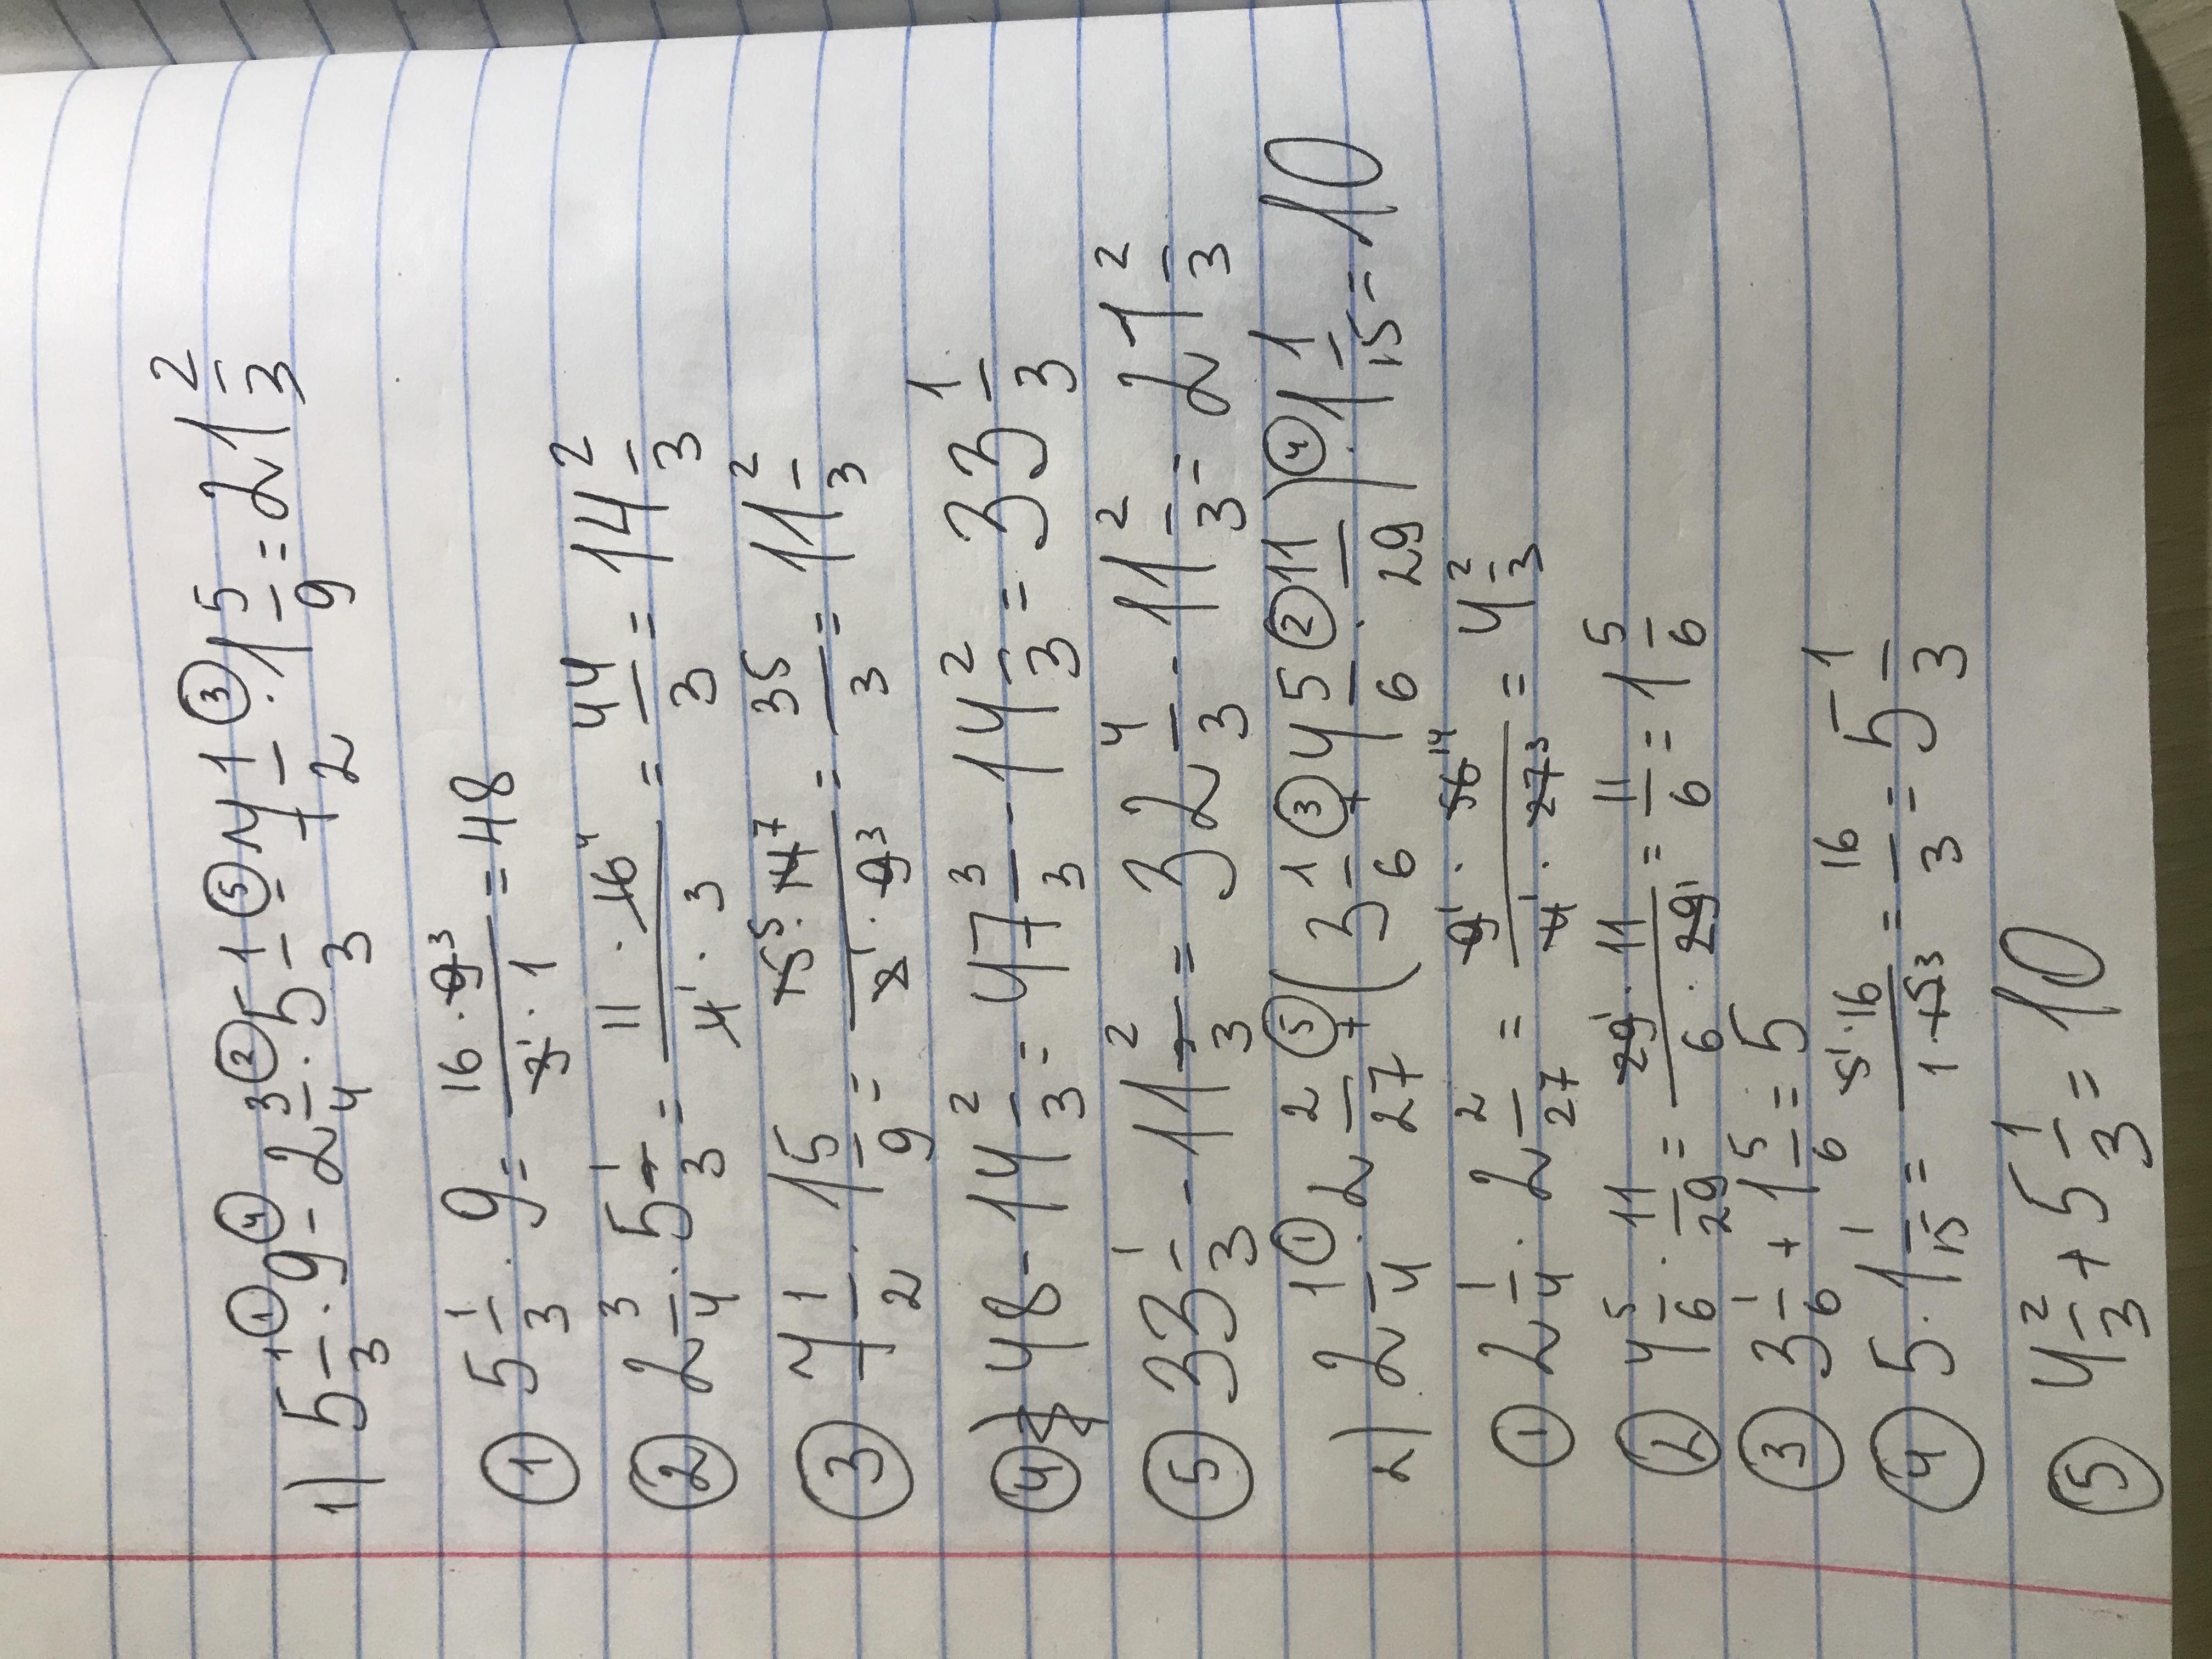 1) 5 1/3 ① · 9 ④ - 2 3/4 ② · 5 1/3 ⑤ - 7 1/2 ③ · 1 5/9 = 21 2/3
① 5 1/3 · 9 = 16 · 9 3 / 3 1 · 1 = 48
② 2 3/4 · 5 1/3 = 11 · 16 4 / 4 1 · 3 = 44/3 = 14 2/3
③ 7 1/2 · 1 5/9 = 15 5 · 14 7 / 2 1 · 9 3 = 35/3 = 11 2/3
④ 48 - 14 2/3 = 47 3/3 - 14 2/3 = 33 1/3
⑤ 33 1/3 - 11 2/3 = 32 4/3 - 11 2/3 = 21 2/3
2) 2 1/4 ① · 2 2/27 ⑤ + (3 1/6 ③ + 4 5/6 ② · 11/29) ④ · 1 1/15 = 10
① 2 1/4 · 2 2/27 = 9 1 · 56 14 / 4 1 · 27 3 = 4 2/3
② 4 5/6 · 11/29 = 29 1 · 11 / 6 · 29 1 = 11/6 = 1 5/6
③ 3 1/6 + 1 5/6 = 5
④ 5 · 1 1/15 = 5 1 · 16 / 1 · 15 3 = 16/3 = 5 1/3
⑤ 4 2/3 + 5 1/3 = 10